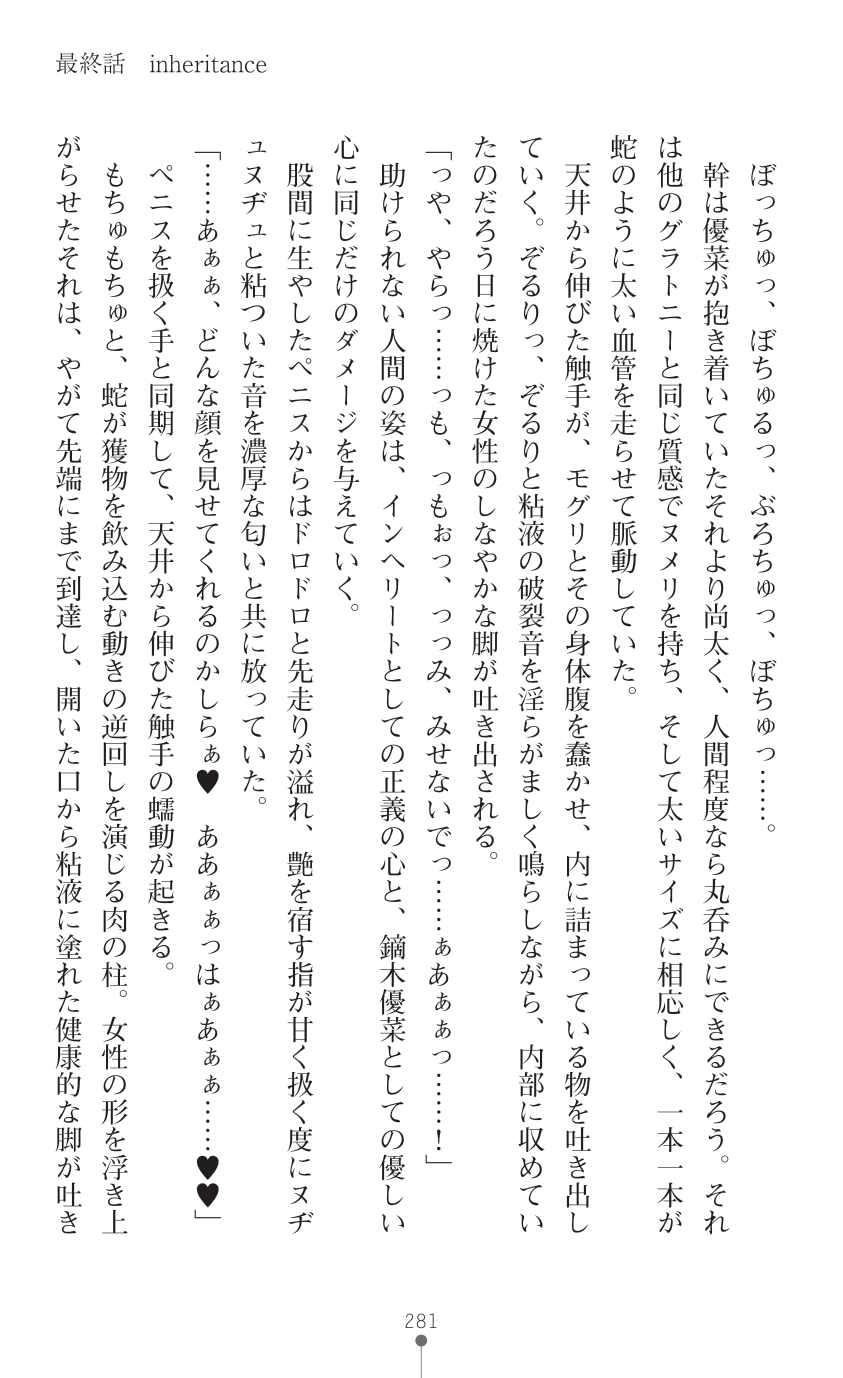 最終話　inheritance
　ぼっちゅっ、ぼちゅるっ、ぶろちゅっ、ぼちゅっ……。
　幹は優菜が抱き着いていたそれより尚太く、人間程度なら丸呑みにできるだろう。それ
は他のグラトニーと同じ質感でヌメリを持ち、そして太いサイズに相応しく、一本一本が
蛇のように太い血管を走らせて脈動していた。
　天井から伸びた触手が、モグリとその身体腹を蠢かせ、内に詰まっている物を吐き出し
ていく。ぞるりっ、ぞるりと粘液の破裂音を淫らがましく鳴らしながら、内部に収めてい
たのだろう日に焼けた女性のしなやかな脚が吐き出される。
「っや、やらっ……っも、っもぉっ、っっみ、みせないでっ……ぁあぁぁっ……！」
　助けられない人間の姿は、インヘリートとしての正義の心と、鏑木優菜としての優しい
心に同じだけのダメージを与えていく。
　股間に生やしたペニスからはドロドロと先走りが溢れ、艶を宿す指が甘く扱く度にヌヂ
ュヌヂュと粘ついた音を濃厚な匂いと共に放っていた。
「……あぁぁ、どんな顔を見せてくれるのかしらぁ♥　ああぁぁっはぁあぁぁ……♥♥」
　ペニスを扱く手と同期して、天井から伸びた触手の蠕動が起きる。
　もちゅもちゅと、蛇が獲物を飲み込む動きの逆回しを演じる肉の柱。女性の形を浮き上
がらせたそれは、やがて先端にまで到達し、開いた口から粘液に塗れた健康的な脚が吐き
281